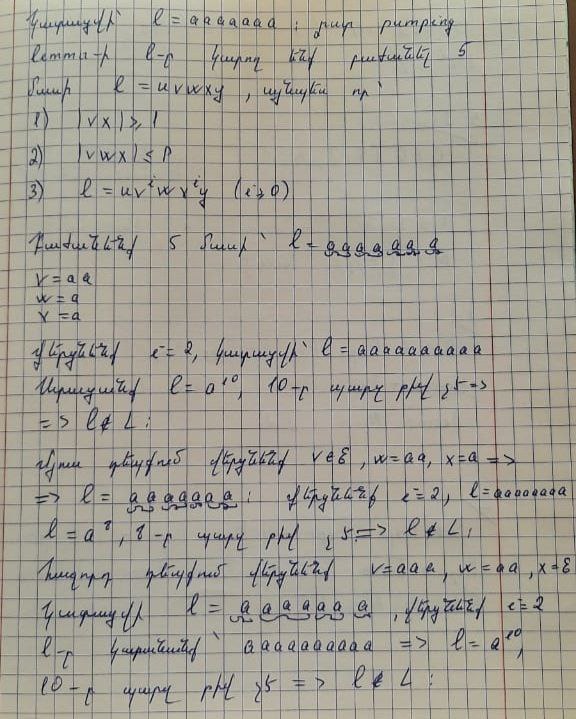 Կստացվի՝ l = aaaaaaa : ըստ pumping
lemma-ի l-ը կարող ենք բաժանել 5
մասի l = uvwxy , այնպես որ՝
1) |vx| ⩾ 1
2) |vwx| ≤ p
3) l = uvⁱwxⁱy (i ⩾ 0)
Բաժանենք 5 մասի՝ l = aaaaaaa
v = aa
w = a
x = a
վերցնենք i = 2, կստացվի՝ l = aaaaaaaaaa
Ստացանք l = a¹⁰, 10-ը պարզ թիվ չէ =>
=> l ∉ L :
Մյուս դեպքում վերցնենք v = ε, w = aa, x = a =>
=> l = aaaaaaa : վերցնենք i = 2, l = aaaaaaaa
l = a⁸, 8-ը պարզ թիվ չէ => l ∉ L :
Հաջորդ դեպքում վերցնենք v = aaa, w = aa, x = ε
Կստացվի l = aaaaaaa , վերցնենք i = 2
l-ը կստանանք՝ aaaaaaaaaa => l = a¹⁰,
10-ը պարզ թիվ չէ => l ∉ L :